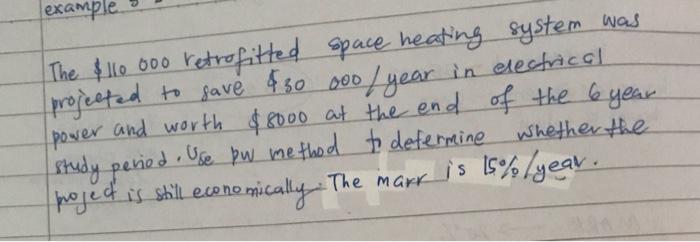 example
The $110 000 retrofitted space heating system was
projected to save $30 000/year in electrical
power and worth $8000 at the end of the 6 year
study period. Use pw method to determine whether the
project is still economically. The marr is 15%/year.